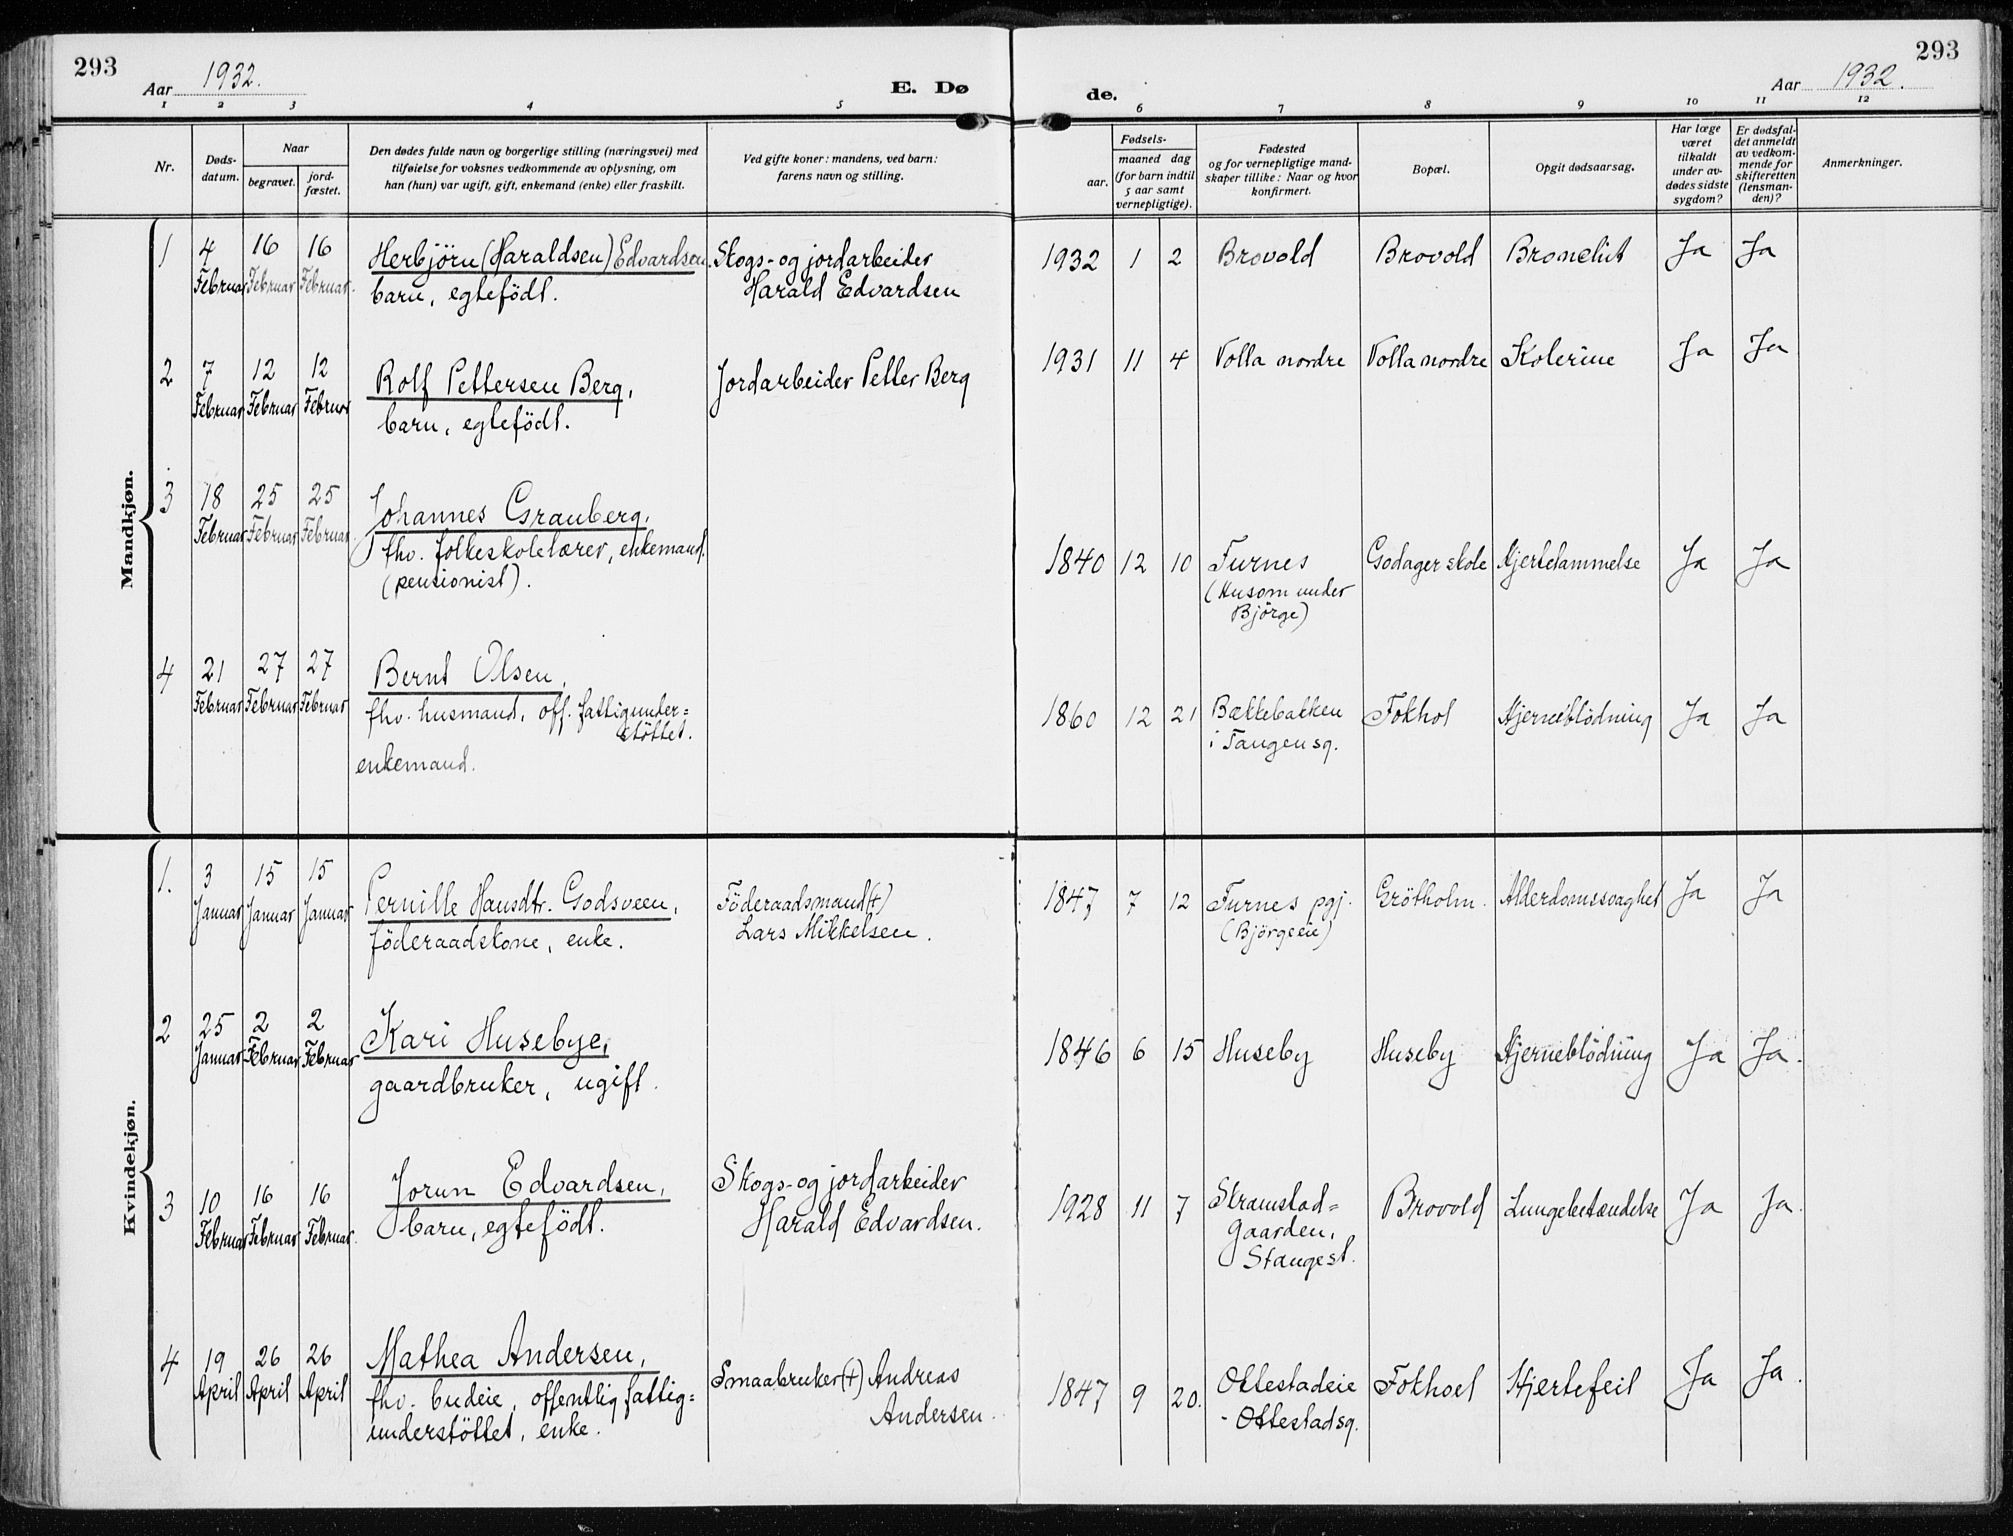 293
Aar 1932.
E. Dø
1 2 3 4 5
Nr.
Døds-
datum.
Naar
begravet.
jord-
fæstet.
Den dødes fulde navn og borgerlige stilling (næringsvei) med
tilføielse for voksnes vedkommende av oplysning, om
han (hun) var ugift, gift, enkemand (enke) eller fraskilt.
Ved gifte koner: mandens, ved barn:
farens navn og stilling.
293
Aar 1932.
de.
6 7 8 9 10 11 12
Fødsels-
aar.
maaned dag
(for barn indtil
5 aar samt
vernepligtige).
Fødested
og for vernepligtige mand-
skaper tillike: Naar og hvor
konfirmert.
Bopæl.
Opgit dødsaarsag.
Har læge
været
tilkaldt
under av-
dødes sidste
sygdom?
Er dødsfal-
det anmeldt
av vedkom-
mende for
skifteretten
(lensman-
den)?
Anmerkninger.
Mandkjøn.
1 4 16 16 Herbjörn (Haraldsen) Edvardsen. Skogs- og jordarbeider 1932 1 2 Brovold Brovold Bronchit Ja Ja
Februar Februar Februar. barn, egtefödt. Harald Edvardsen
2 7 12 12 Rolf Pettersen Berg, Jordarbeider Petter Berg 1931 11 4 Volla nordre Volla nordre Kolerine Ja Ja
Februar Februar Februar barn, egtefödt.
3 18 25 25 Johannes Grauberg,
Februar Februar Februar. fhv. folkeskolelærer, enkemand. 1840 12 10 Furnes Godager skole Hjertelammelse Ja Ja
(pensionist). (Husom under
Björge)
4 21 27 27 Bernt Olsen,
Februar Februar Februar fhv. husmand, off. fattigunder= 1860 12 21 Bækkebakken Fokhol Hjerneblödning Ja Ja
stöttet. i Tangen sq.
enkemand.
Kvindekjøn.
1. 3 15 15 Pernille Hansdtr. Godsveen, Föderaadsmand (+) 1847 7 12 Furnes pgj. Grötholm. Alderdomssvaghet Ja Ja
Januar Januar Januar föderaadskone, enke. Lars Mikkelsen. (Björgeeie)
2 25 2 2 Kari Husebye, 1846 6 15 Huseby Huseby Hjerneblödning Ja Ja.
Januar Februar Februar gaardbruker, ugift.
3 10 16 16 Jorun Edvardsen, Skogs- og jordarbeider 1928 11 7 Stramstad= Brovold Lungebetændelse Ja Ja.
Februar Februar Februar. barn, egtefödt. Harald Edvardsen. Gaarden,
Stangest.
4 19 26 26 Mathea Andersen, Smaabruker (+) Andreas 1847 9 20. Ottestadeie Fokhoel Hjertefeil Ja Ja.
April April April fhv. budeie, offentlig fattig= Andersen. - Ottestadsq.
understöttet, enke.